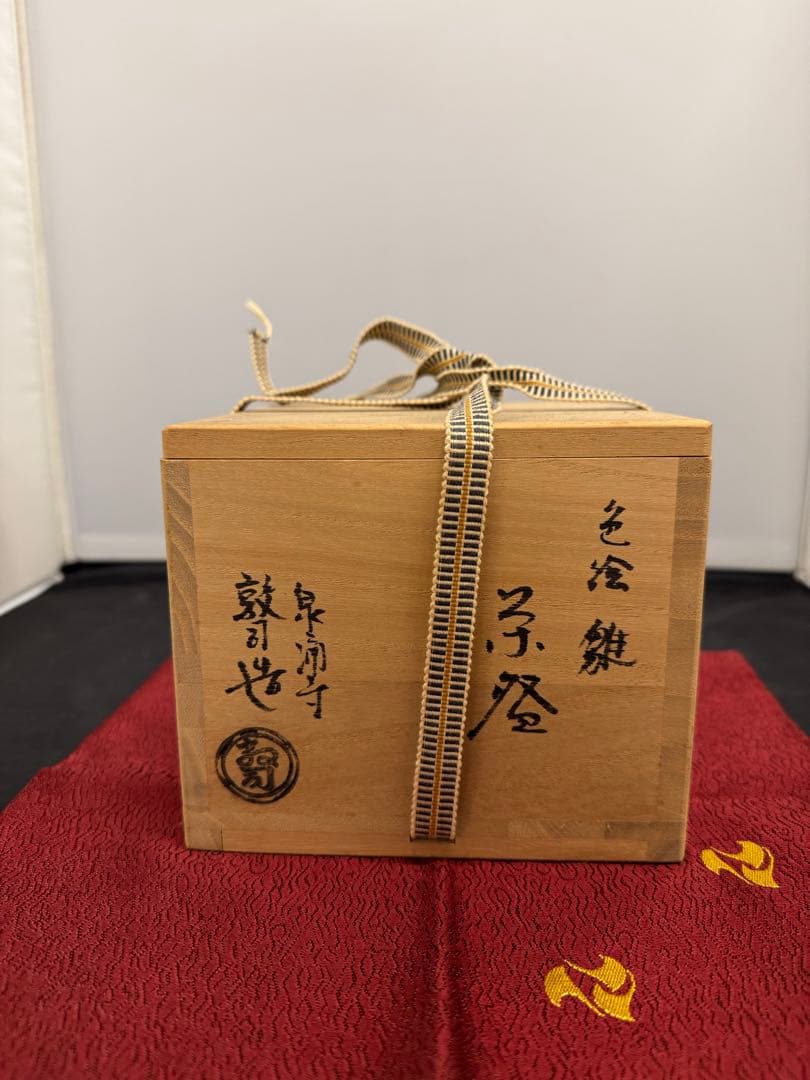 色絵 雛
茶碗
泉涌寺
敦司造
寿